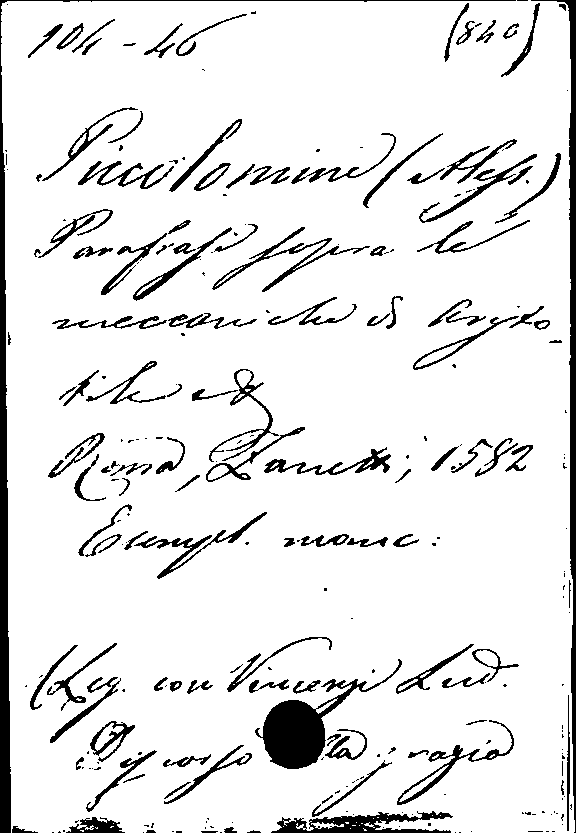 104-46 (840)
Piccolomini (Aless.)
Parafrasi sopra le
meccaniche di Aristo-
tile etc
Roma, Zanetti, 1582
Esempl. manc:
(Leg. con Vincenzi Lud.
Discorso lla grazia